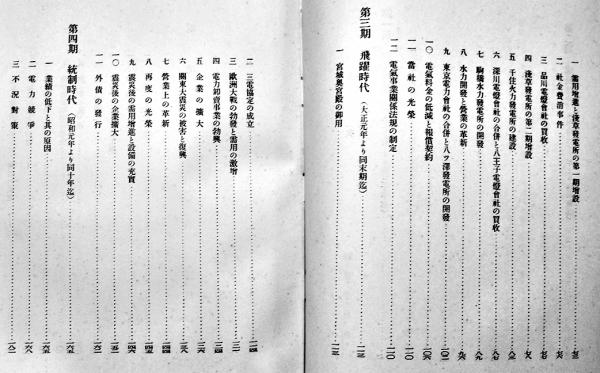 一 需用增進と淺草發電所の第一期增設
二 社金費消事件
三 品川電燈會社の買收
四 淺草發電所の第二期增設
五 千住火力發電所の建設
六 深川電燈會社の合併と八王子電燈會社の買收
七 駒橋水力發電所の開發
八 水力開發と營業の革新
九 東京電力會社の合併と八ツ澤發電所の開發
一〇 電氣料金の低減と報償契約
一一 當社の光榮
一二 電氣事業關係法規の制定
第三期 飛躍時代 (大正元年より同末期迄)
一 宮城奧宮殿の御用
二 三電協定の成立
三 歐洲大戰の勃發と需用の激增
四 電力卸賣事業の勃興
五 企業の擴大
六 關東大震災の被害と復興
七 營業上の革新
八 再度の光榮
九 震災後の需用增進と設備の充實
一〇 震災後の企業擴大
一一 外債の發行
第四期 統制時代 (昭和元年より同十年迄)
一 業績の低下と其の原因
二 電力競爭
三 不況對策